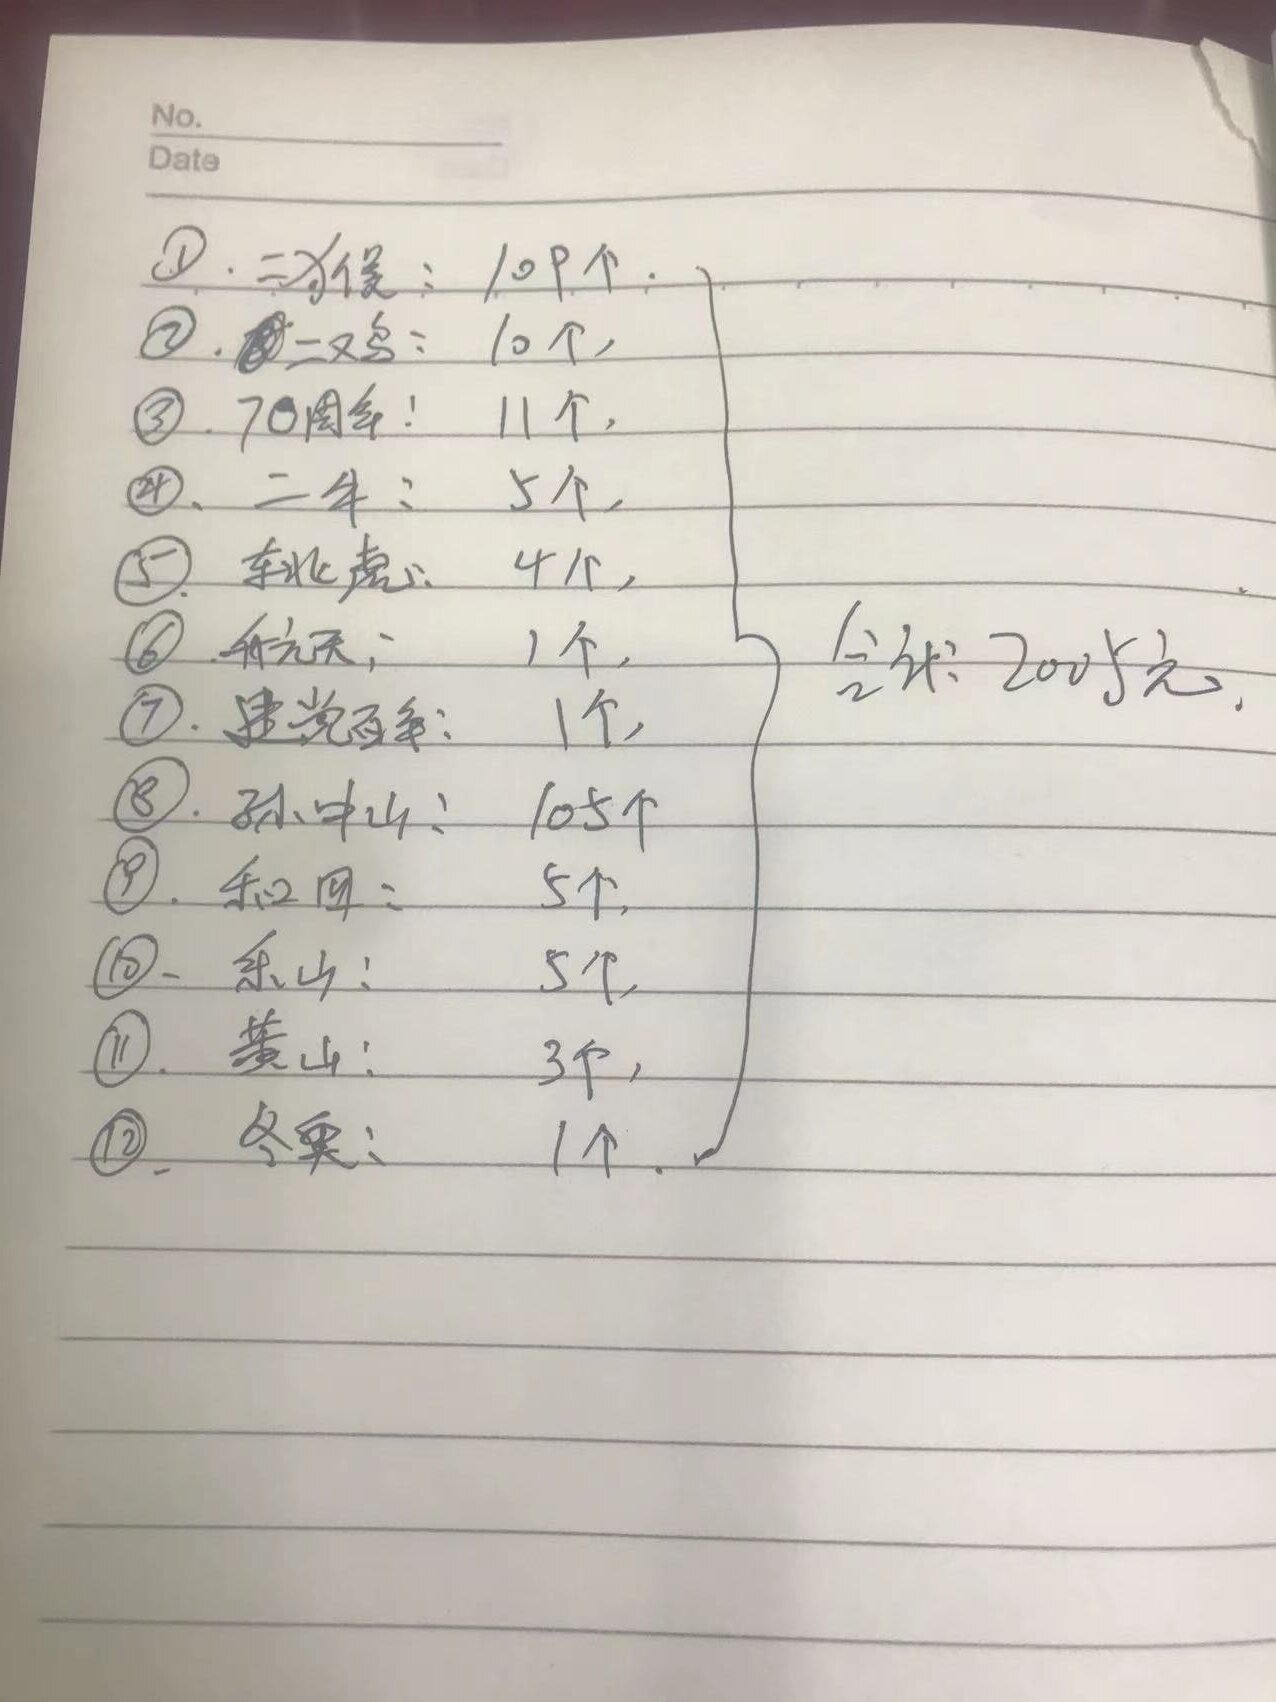 No.
Date
①. 二猴: 109个.
②. 二鸡: 10个,
③. 70周年: 11个,
④、二牛: 5个,
⑤. 东北虎: 4个,
⑥. 航天: 1个,
⑦. 建党百年: 1个,
⑧. 孙中山: 105个
⑨. 和四: 5个,
⑩- 乐山: 5个,
⑪. 黄山: 3个,
⑫- 冬奥: 1个.
合计: 2005元.